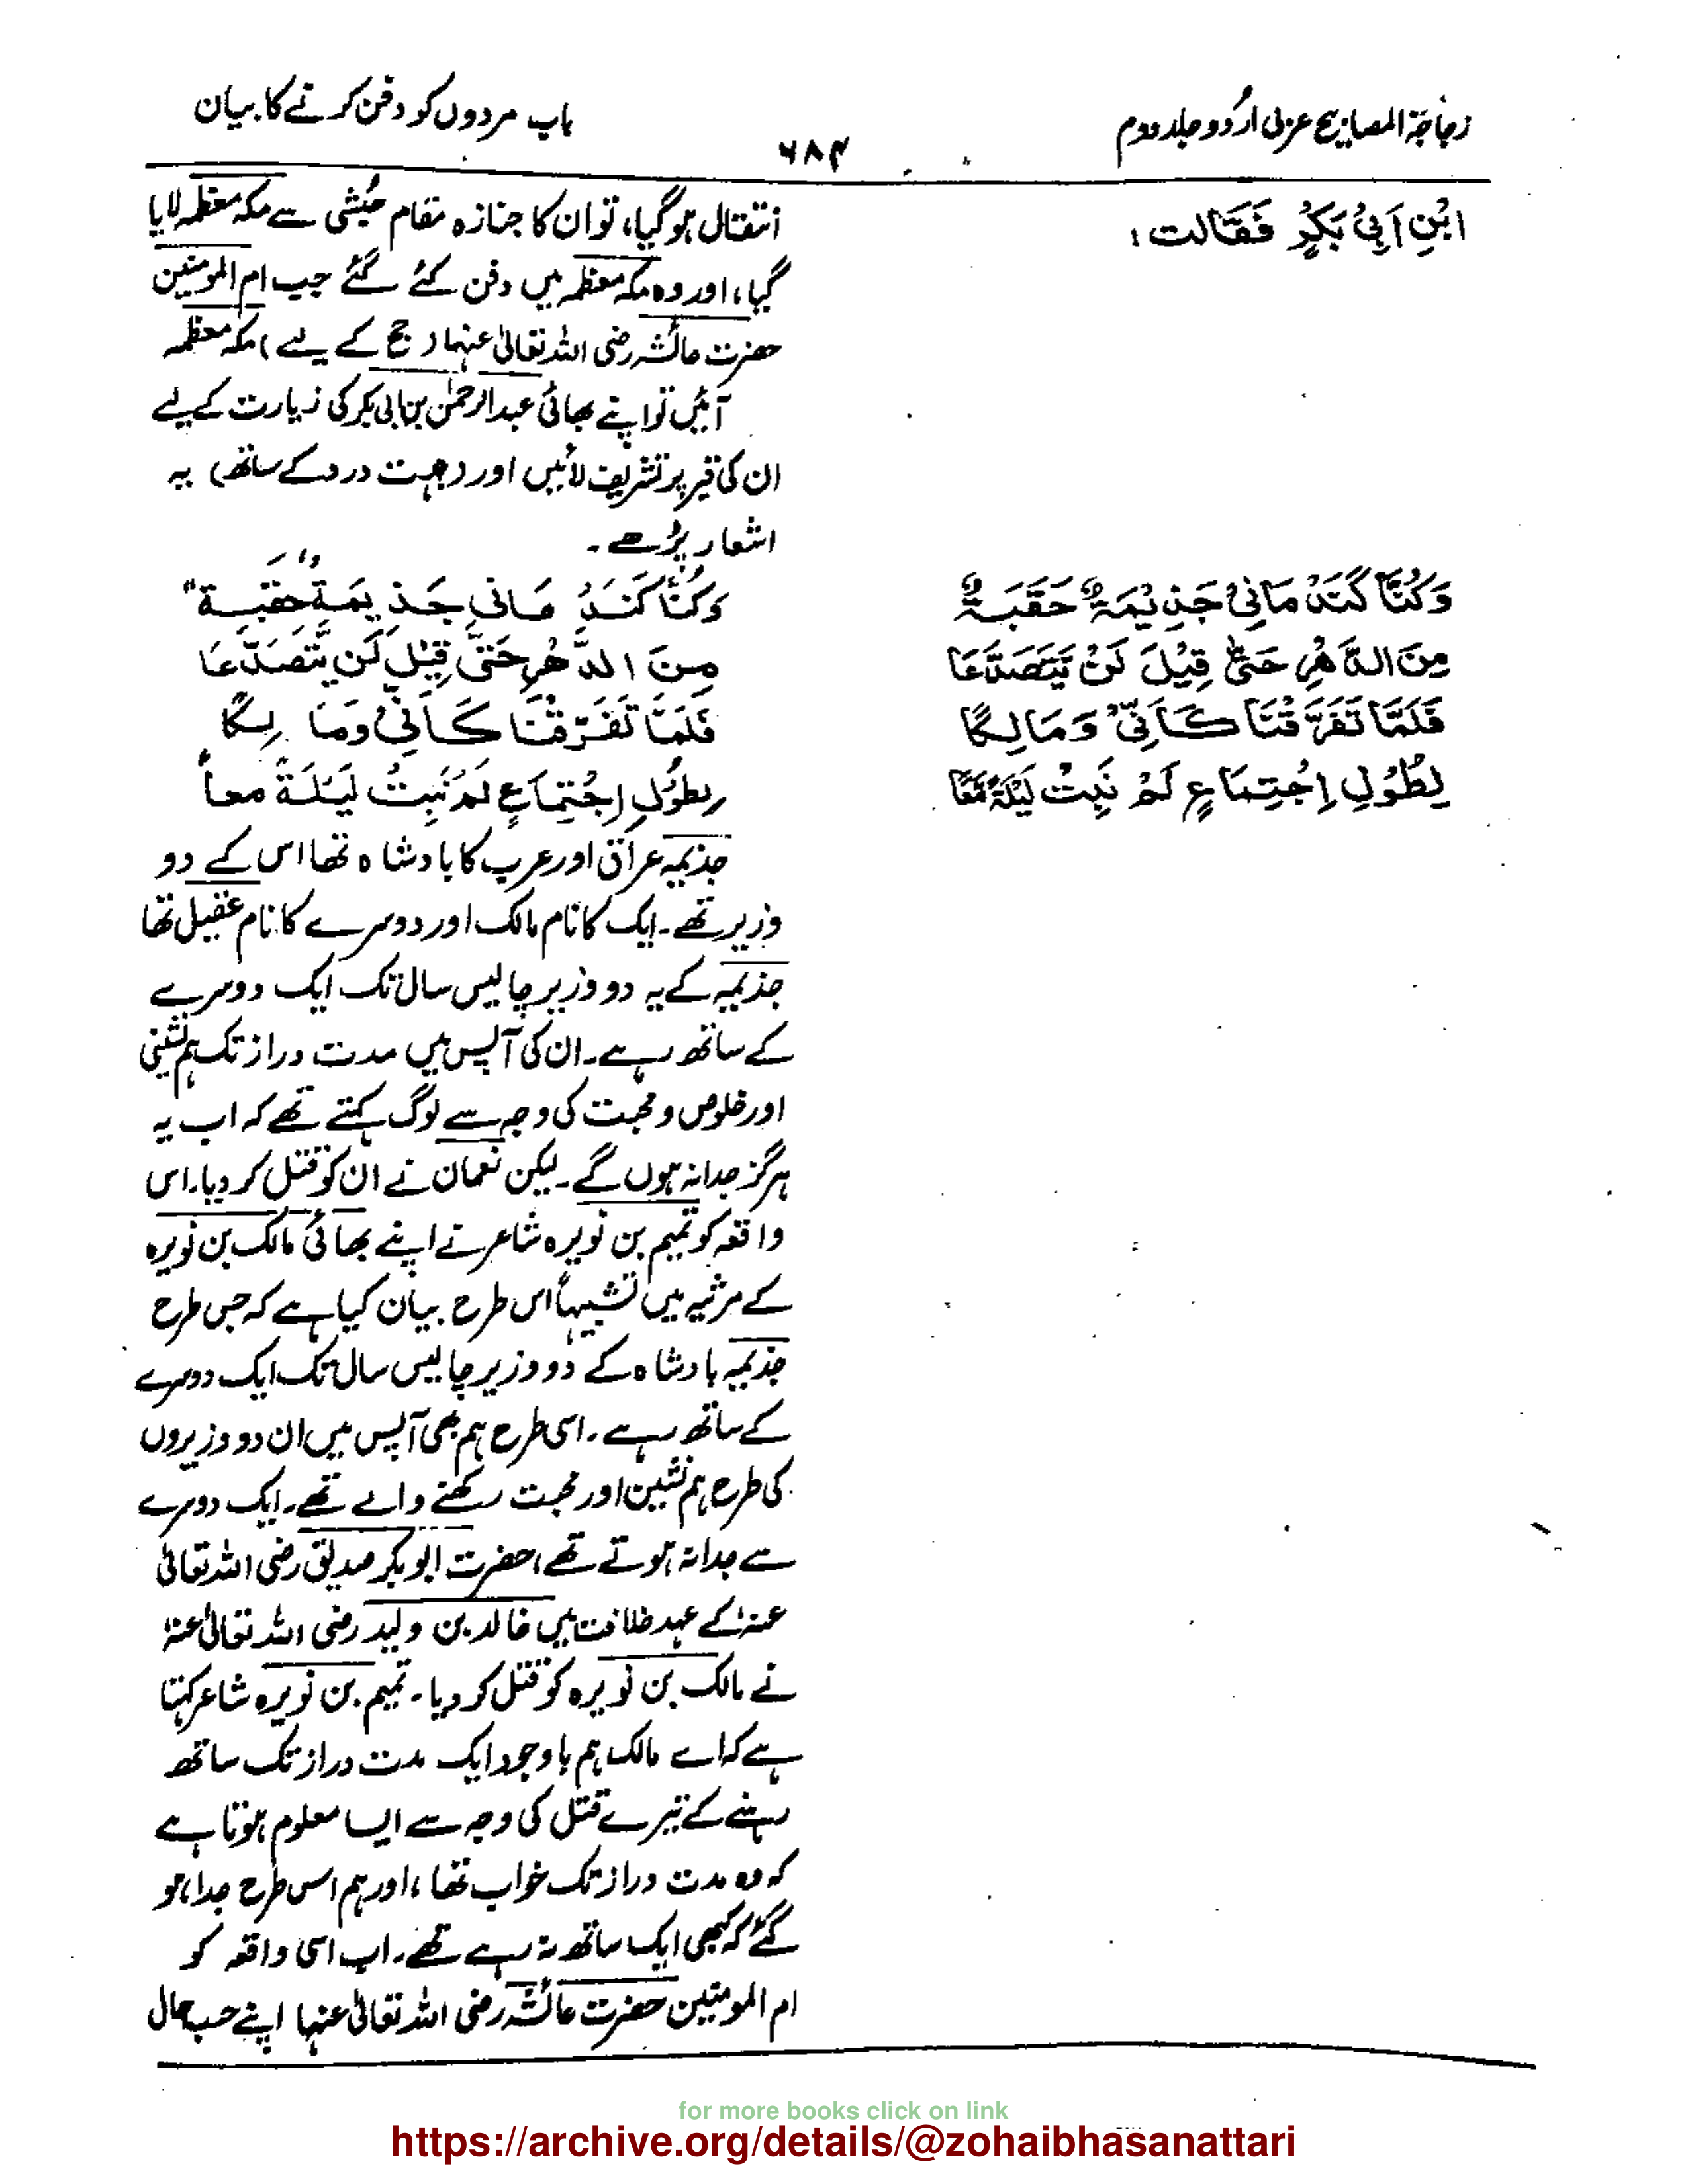 زجاجة المصابیح عربی اردو جلد دوم
۶۸۴
باب مردوں کو دفن کرنے کا بیان
ابْنِ اَبِیْ بَکْرٍ فَقَالَت :
وَکُنَّا کَنَدْ مَانِیْ جَذِیْمَۃٌ حَقَبَۃٌ
مِنَ الدَّهْرِ حَتّٰی قِیْلَ لَنْ یَّتَصَدَّعَا
فَلَمَّا تَفَرَّقْنَا کَاَنِّیْ وَمَالِکًا
لِطُوْلِ اِجْتِمَاعٍ لَمْ نَبِتْ لَیْلَۃً مَّعًا
انتقال ہو گیا، تو ان کا جنازہ مقام حُبشی سے مکہ معظمہ لایا
گیا، اور وہ مکہ معظمہ میں دفن کئے گئے جب ام المومنین
حضرت عائشہ رضی اللہ تعالیٰ عنہا (حج کے لیے) مکہ معظمہ
آئیں تو اپنے بھائی عبدالرحمٰن بن ابی بکر کی زیارت کے لیے
ان کی قبر پر تشریف لائیں اور (بہت درد کے ساتھ) یہ
اشعار پڑھے ۔
وَکُنَّا کَنَدْ مَانِی جَذِیمَۃَ حِقْبَۃً
مِنَ الدَّهْرِ حَتّٰی قِیْلَ لَن یَّتَصَدَّعَا
فَلَمَّا تَفَرَّقْنَا کَاَنِّیْ وَمَا لِکًا
لِطُوْلِ اِجْتِمَاعٍ لَمْ نَبِتْ لَیْلَۃً معاً
جذیمہ عراق اور عرب کا بادشاہ تھا اس کے دو
وزیر تھے۔ ایک کا نام مالک اور دوسرے کا نام عقیل تھا
جذیمہ کے یہ دو وزیر چالیس سال تک ایک دوسرے
کے ساتھ رہے۔ ان کی آپس میں مدت دراز تک ہم نشینی
اور خلوص و محبت کی وجہ سے لوگ کہتے تھے کہ اب یہ
ہرگز جدا نہ ہوں گے۔ لیکن نعمان نے ان کو قتل کر دیا۔ اس
واقعہ کو تمیم بن نویرہ شاعر نے اپنے بھائی مالک بن نویرہ
کے مرثیہ میں تشبیہاً اس طرح بیان کیا ہے کہ جس طرح
جذیمہ بادشاہ کے دو وزیر چالیس سال تک ایک دوسرے
کے ساتھ رہے۔ اسی طرح ہم بھی آپس میں ان دو وزیروں
کی طرح ہم نشین اور محبت رکھنے والے تھے۔ ایک دوسرے
سے جدا نہ ہوتے تھے، حضرت ابوبکر صدیق رضی اللہ تعالیٰ
عنہٗ کے عہد خلافت میں خالد بن ولید رضی اللہ تعالیٰ عنہٗ
نے مالک بن نویرہ کو قتل کر دیا۔ تمیم بن نویرہ شاعر کہتا
ہے کہ اے مالک ہم باوجود ایک مدت دراز تک ساتھ
رہنے کے تیرے قتل کی وجہ سے ایسا معلوم ہوتا ہے
کہ وہ مدت دراز تک خواب تھا، اور ہم اس طرح جدا ہو
گئے کہ کبھی ایک ساتھ نہ رہے تھے۔ اب اسی واقعہ کو
ام المومنین حضرت عائشہ رضی اللہ تعالیٰ عنہا اپنے حسب حال
for more books click on link
https://archive.org/details/@zohaibhasanattari